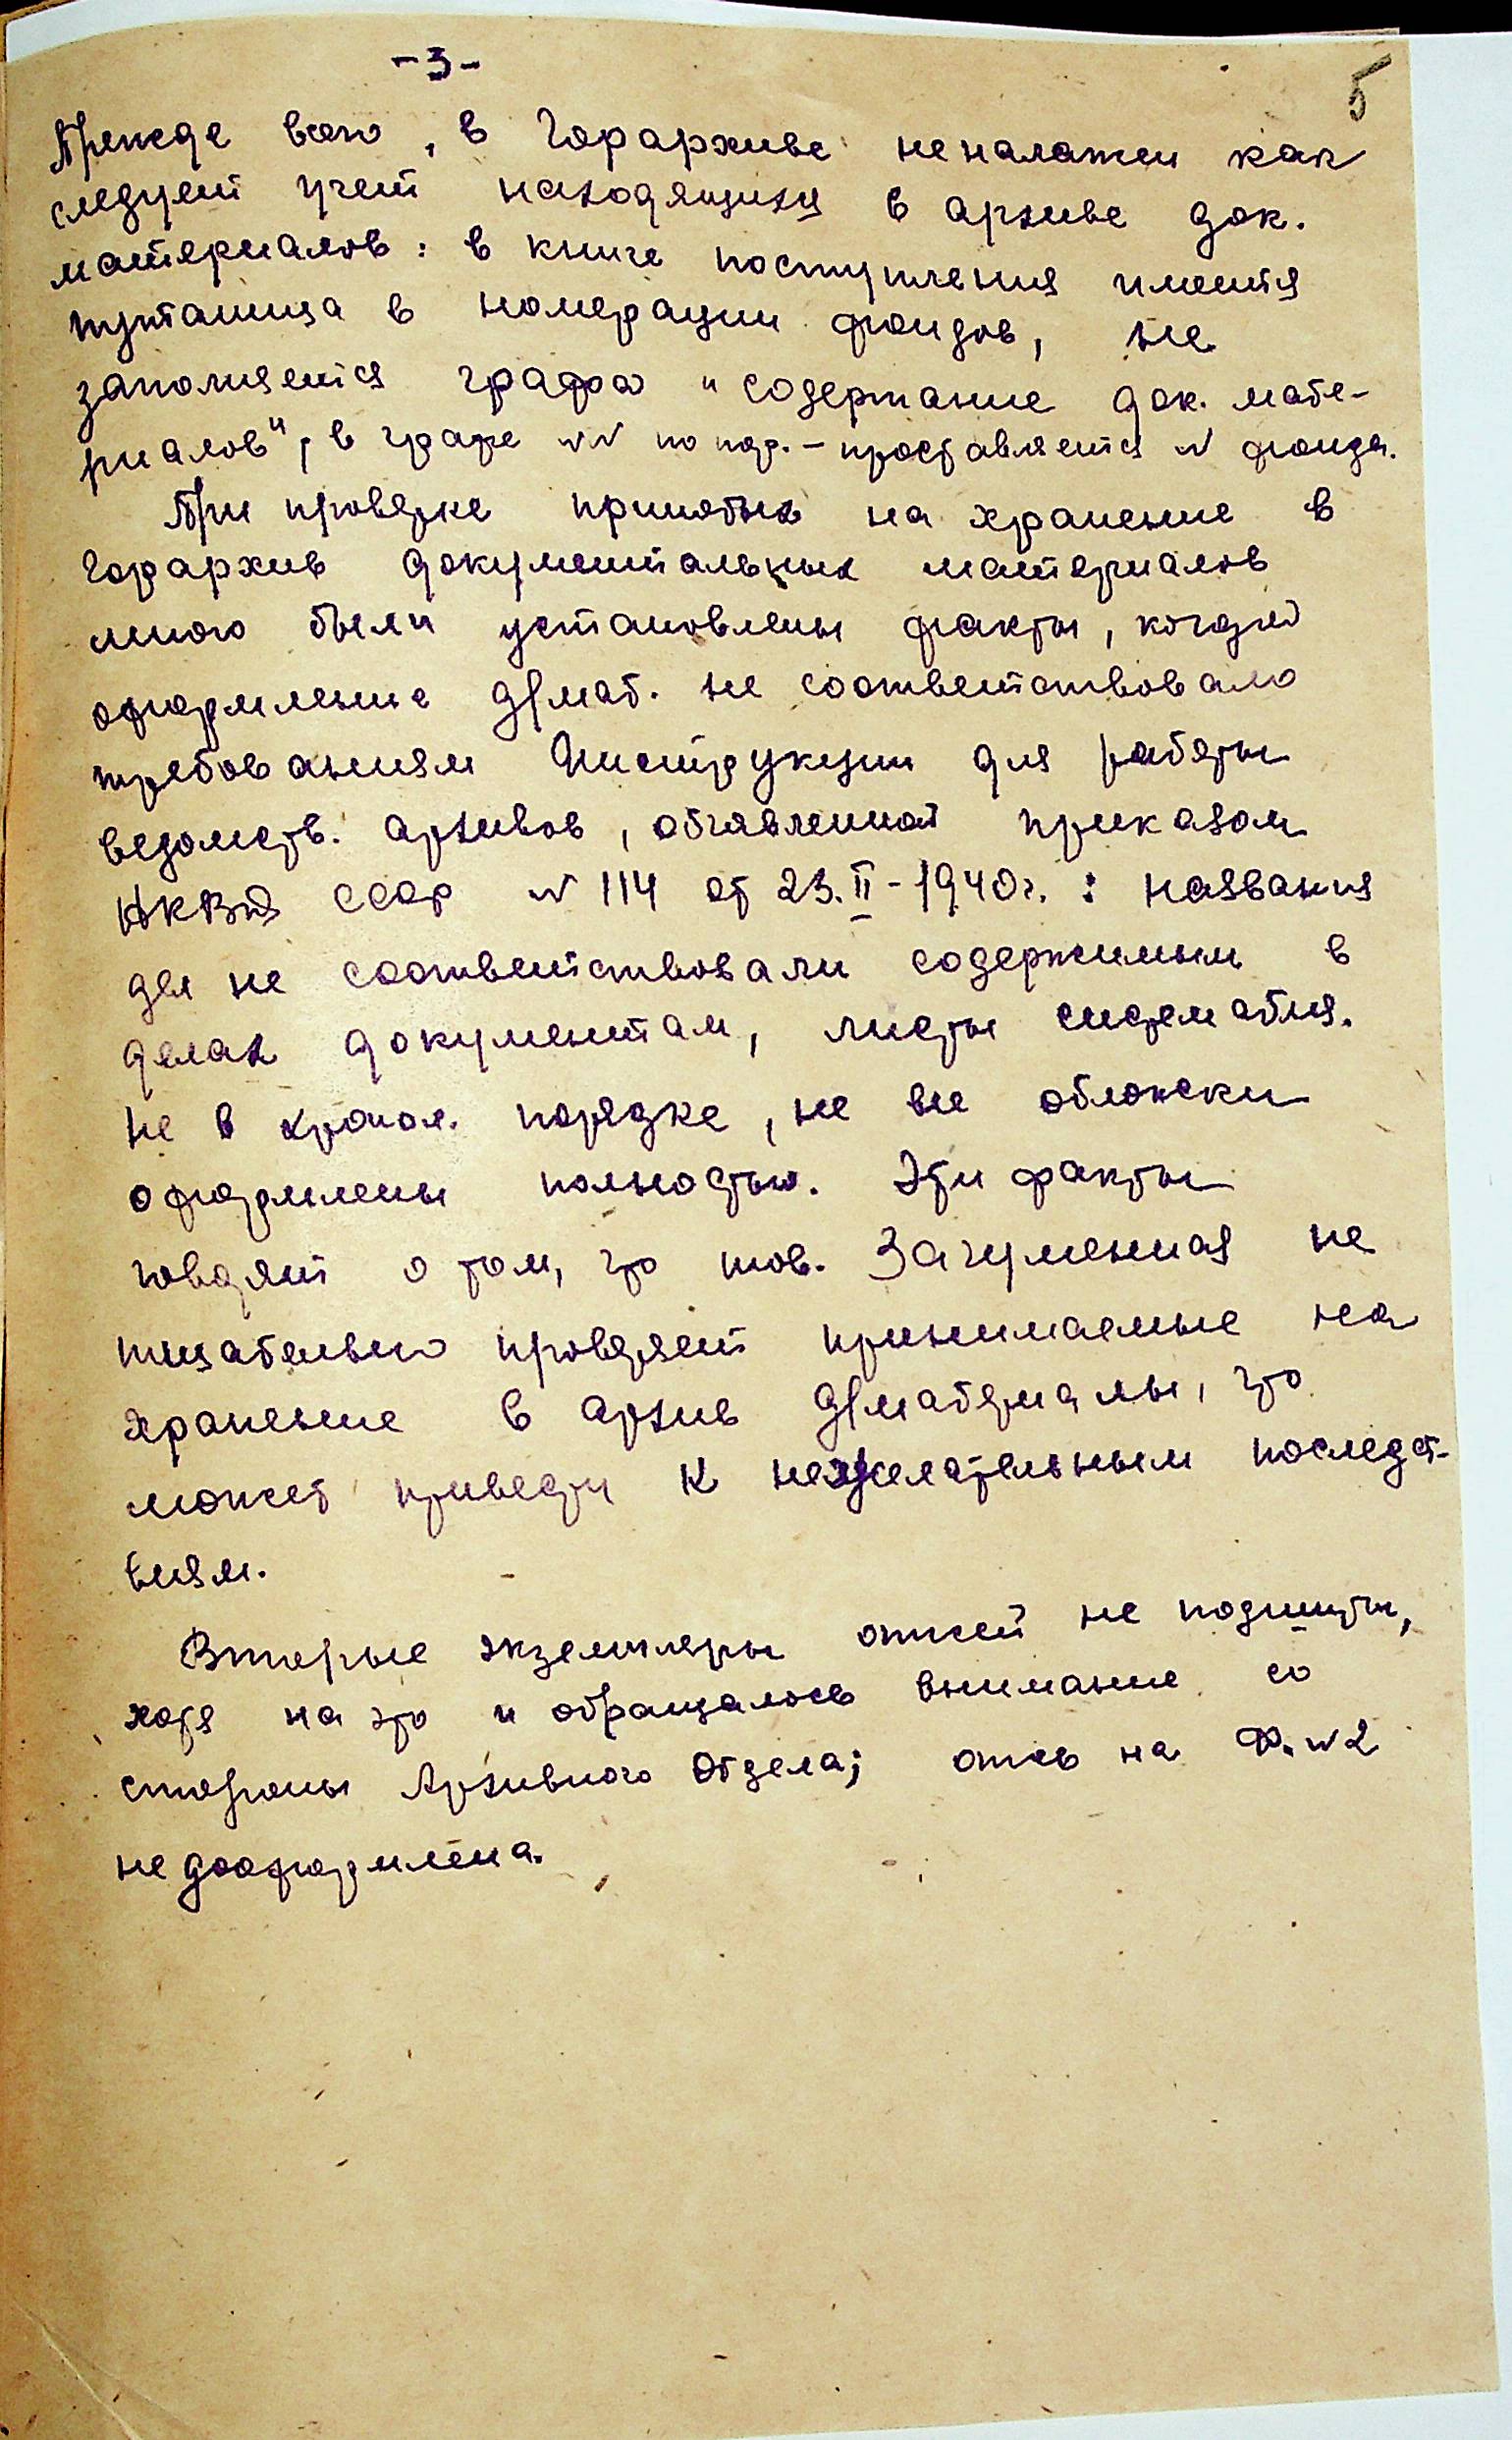 -3-
5
Прежде всего, в Горархиве неналажен как
следует учет находящихся в архиве док.
материалов: в книге поступления имеется
путаница в номерации фондов, не
заполняется графа "содержание док. мате-
риалов", в графе NN по пор. - проставляется N фонда.
При проверке принятых на хранение в
Горархив документальных материалов
мною были установлены факты, когда
оформление д/мат. не соответствовало
требованиям Инструкции для работы
ведомств. архивов, объявленной приказом
НКВД СССР N 114 от 23.II-1940г.: названия
дел не соответствовали содержимым в
делах документам, листы систематиз.
не в хронол. порядке, не все обложки
оформлены полностью. Эти факты
говорят о том, что тов. Загуменная не
тщательно проверяет принимаемые на
хранение в архив д/материалы, что
может привести к нежелательным последст-
виям.
Вторые экземпляры описей не подшиты,
хотя на это и обращалось внимание со
стороны Архивного Отдела; опись на Ф. N 2
не дооформлена.